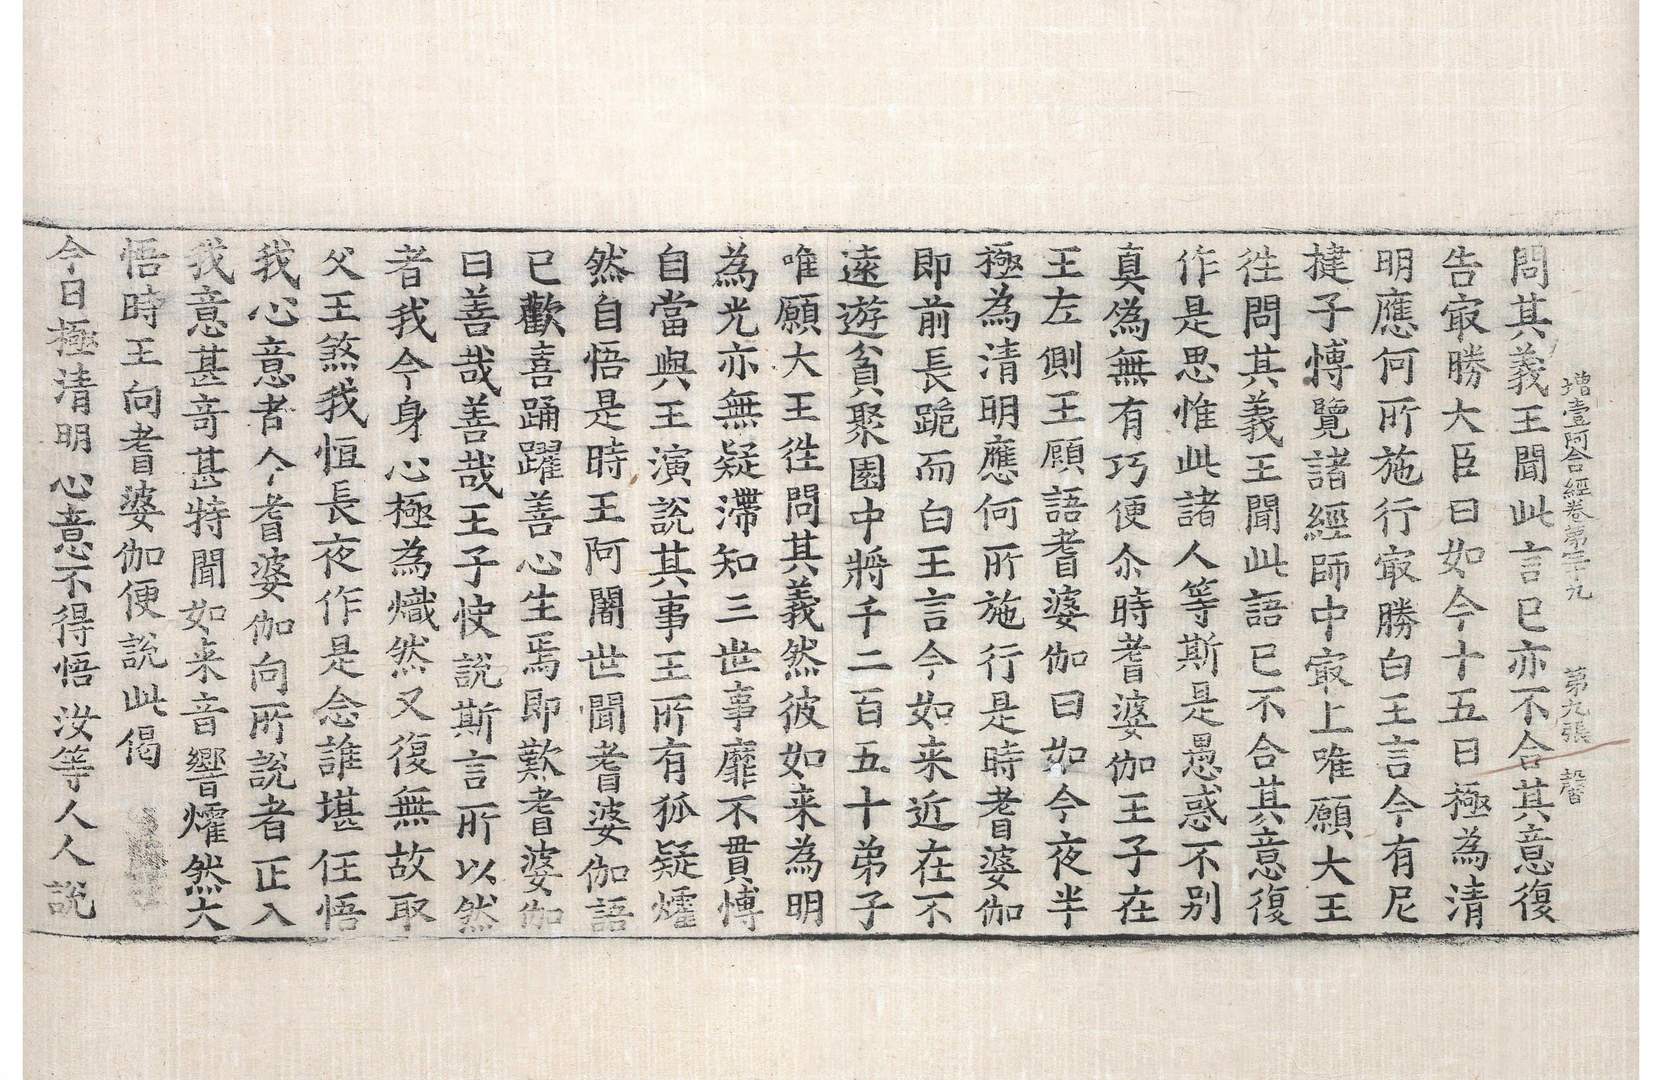 增壹阿含經卷第三十九　第九張　馨
問其義王聞此言已亦不合其意復
告㝡勝大臣曰如今十五日極為清
明應何所施行㝡勝白王言今有尼
揵子愽覽諸經師中㝡上唯願大王
往問其義王聞此語已不合其意復
作是思惟此諸人等斯是愚惑不別
真偽無有巧便尒時耆婆伽王子在
王左側王顧語耆婆伽曰如今夜半
極為清明應何所施行是時耆婆伽
即前長跪而白王言今如来近在不
遠遊貧聚園中將千二百五十弟子
唯願大王往問其義然彼如来為明
為光亦無疑滯知三世事靡不貫愽
自當與王演說其事王所有狐疑㸌
然自悟是時王阿闍世聞耆婆伽語
已歡喜踊躍善心生焉即歎耆婆伽
曰善哉善哉王子快說斯言所以然
者我今身心極為熾然又復無故取
父王煞我恒長夜作是念誰堪任悟
我心意者今耆婆伽向所說者正入
我意甚奇甚特聞如来音響㸌然大
悟時王向耆婆伽便說此偈
今日極清明　心意不得悟　汝等人人說